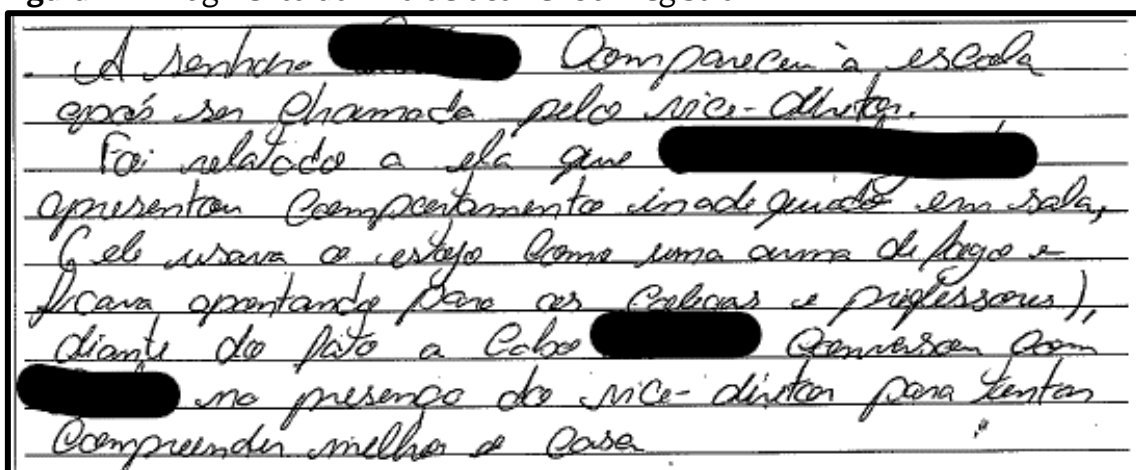 A senhora compareceu à escola
após ser chamada pelo vice-diretor.
Foi relatado a ela que
apresentou comportamento inadequado em sala,
(ele usava o estojo como uma arma de fogo e
ficava apontando para os colegas e professores),
diante do fato a Cabo conversou com
na presença do vice-diretor para tentar
compreender melhor o caso